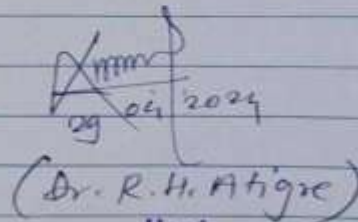 29 04 2024
(Dr. R. H. Atigre)